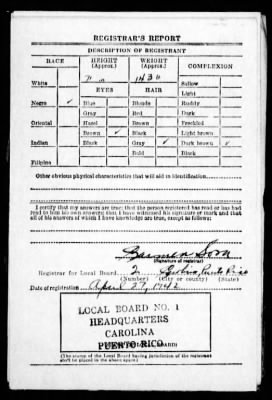 REGISTRAR'S REPORT
DESCRIPTION OF REGISTRANT
RACE HEIGHT (Approx.) WEIGHT (Approx.) COMPLEXION
White 143 Sallow
EYES HAIR Light
Negro ✓ Blue Blonde Ruddy
Gray Red Dark
Oriental Hazel Brown Freckled
Brown ✓ Black Light brown
Indian Black Gray ✓ Dark brown ✓
Bald Black
Filipino
Other obvious physical characteristics that will aid in identification
I certify that my answers are true; that the person registered has read or has had
read to him his own answers; that I have witnessed his signature or mark and that
all of his answers of which I have knowledge are true, except as follows:
Carmen
(Signature of registrar)
Registrar for Local Board 2 Puerto Rico
(Number) (City or county) (State)
Date of registration April 27, 1942
LOCAL BOARD NO. 1
HEADQUARTERS
CAROLINA
PUERTO RICO
(The stamp of the Local Board having jurisdiction of the registrant
shall be placed in the above space.)